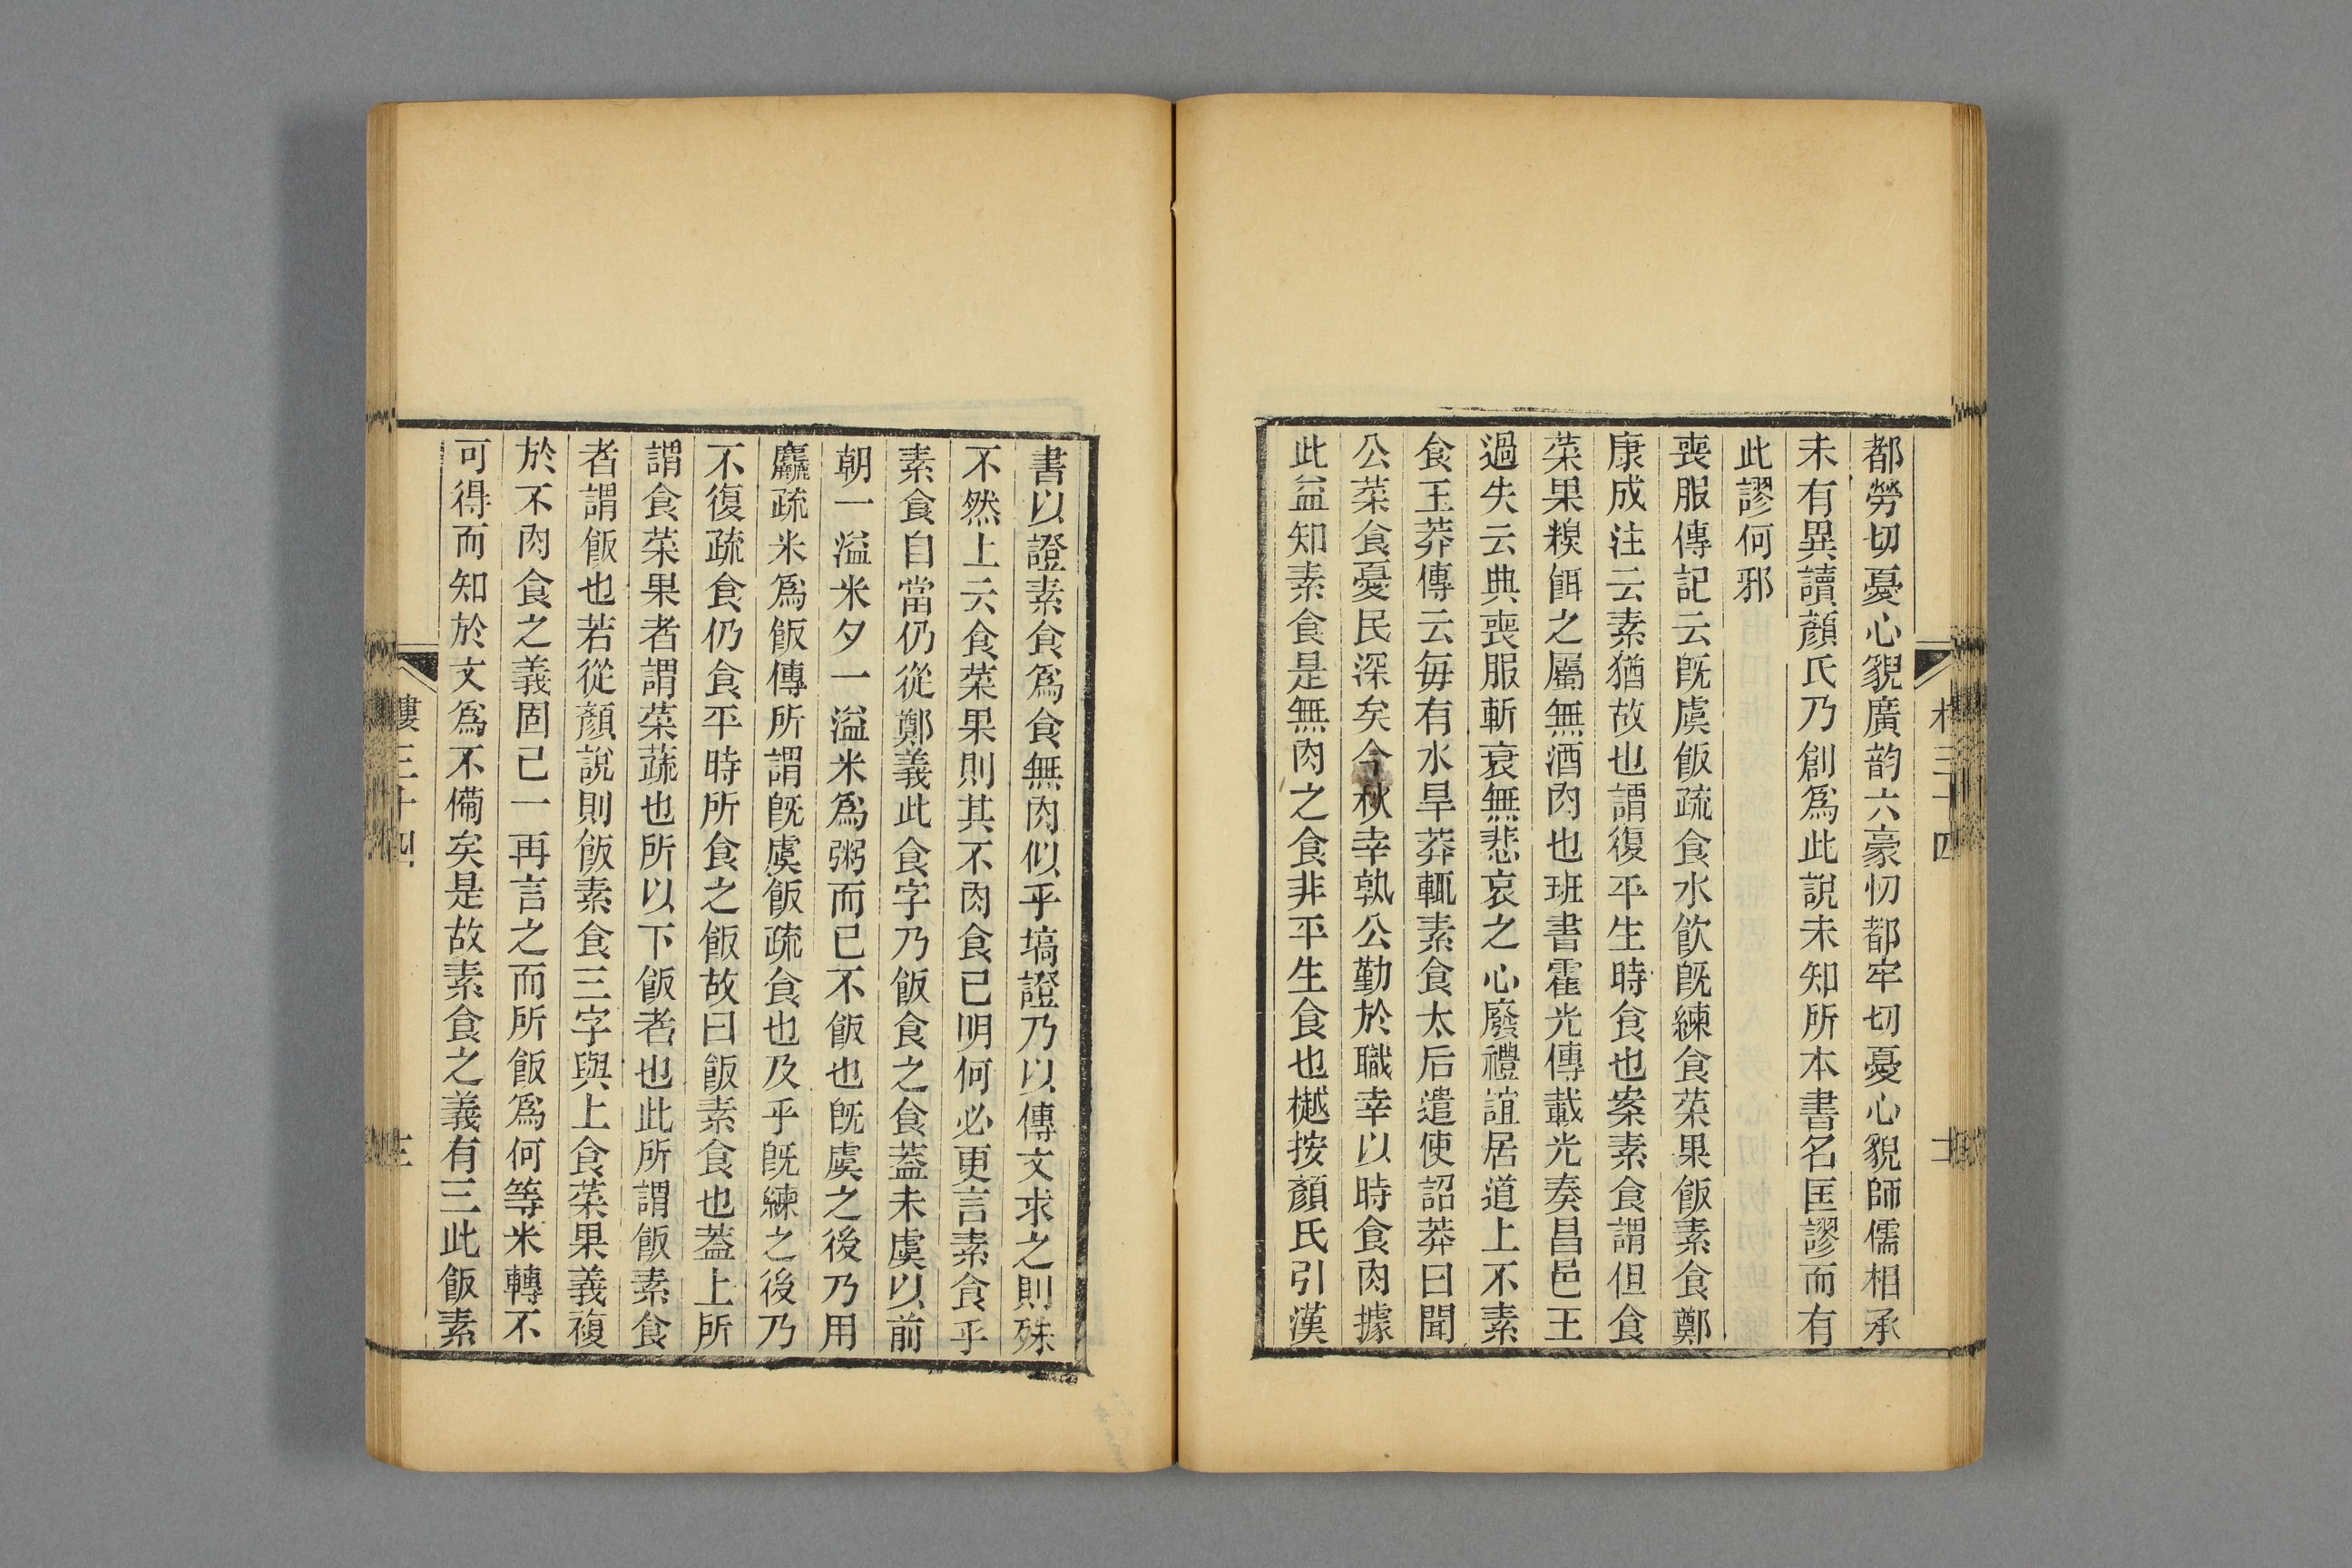 都勞切憂心貎廣韵六豪忉都牢切憂心貎師儒相承
未有異讀顔氏乃創爲此說未知所本書名匡謬而有
此謬何邪
喪服傳記云旣虞飯疏食水飮旣練食菜果飯素食鄭
康成注云素猶故也謂復平生時食也案素食謂但食
菜果糗餌之屬無酒肉也班書霍光傳載光奏昌邑王
過失云典喪服斬衰無悲哀之心廢禮誼居道上不素
食王莽傳云每有水旱莽輒素食太后遣使詔莽曰聞
公菜食憂民深矣今秋幸孰公勤於職幸以時食肉據
此益知素食是無肉之食非平生食也樾按顏氏引漢
三十四
書以證素食爲食無肉似乎塙證乃以傳文求之則殊
不然上云食菜果則其不肉食已明何必更言素食乎
素食自當仍從鄭義此食字乃飯食之食蓋未虞以前
朝一溢米夕一溢米爲粥而已不飯也旣虞之後乃用
麤疏米爲飯傳所謂旣虞飯疏食也及乎旣練之後乃
不復疏食仍食平時所食之飯故曰飯素食也蓋上所
謂食菜果者謂菜蔬也所以下飯者也此所謂飯素食
者謂飯也若從顏說則飯素食三字與上食菜果義複
於不肉食之義固已一再言之而所飯爲何等米轉不
可得而知於文爲不備矣是故素食之義有三此飯素
樓三十四